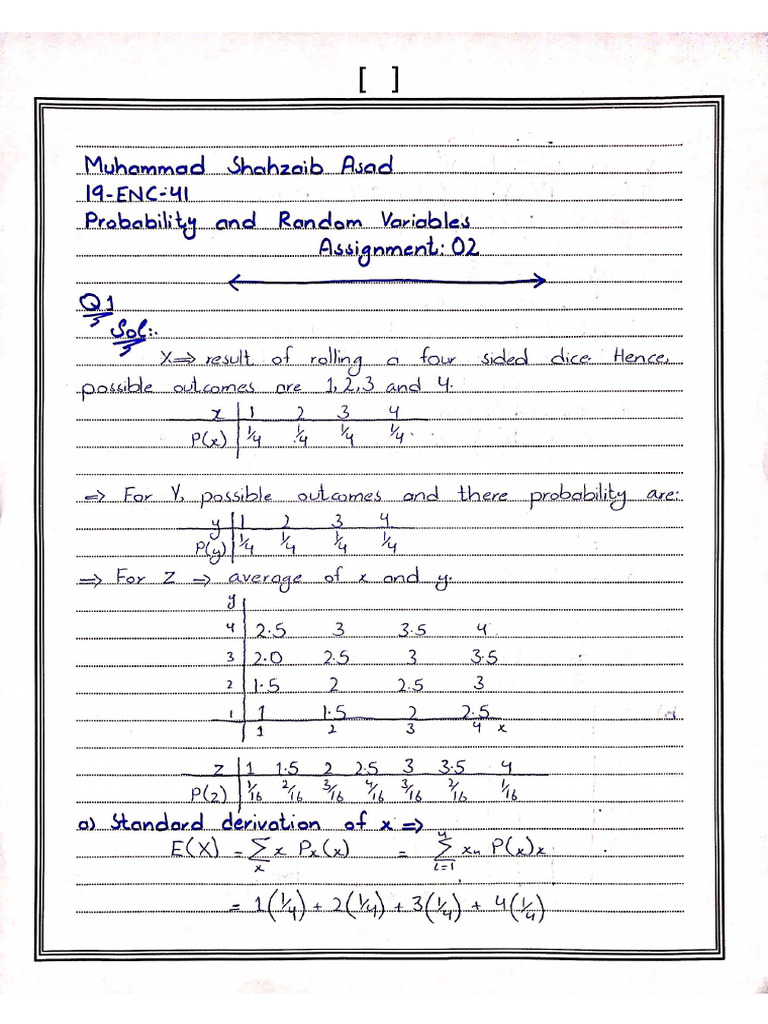 [ ]
Muhammad Shahzaib Asad
19-ENC-41
Probability and Random Variables
Assignment: 02
Q1
Sol:.
X⇒ result of rolling a four sided dice. Hence,
possible outcomes are 1,2,3 and 4.
x 1 2 3 4
P(x) 1/4 1/4 1/4 1/4
⇒ For Y, possible outcomes and there probability are:
y 1 2 3 4
P(y) 1/4 1/4 1/4 1/4
⇒ For Z ⇒ average of x and y.
y
4 2.5 3 3.5 4
3 2.0 2.5 3 3.5
2 1.5 2 2.5 3
1 1 1.5 2 2.5
1 2 3 4 x
z 1 1.5 2 2.5 3 3.5 4
P(z) 1/16 2/16 3/16 4/16 3/16 2/16 1/16
a) Standard derivation of x ⇒
E(X) = Σx x Px(x) = Σ4i=1 xn P(x)x
= 1(1/4) + 2(1/4) + 3(1/4) + 4(1/4)